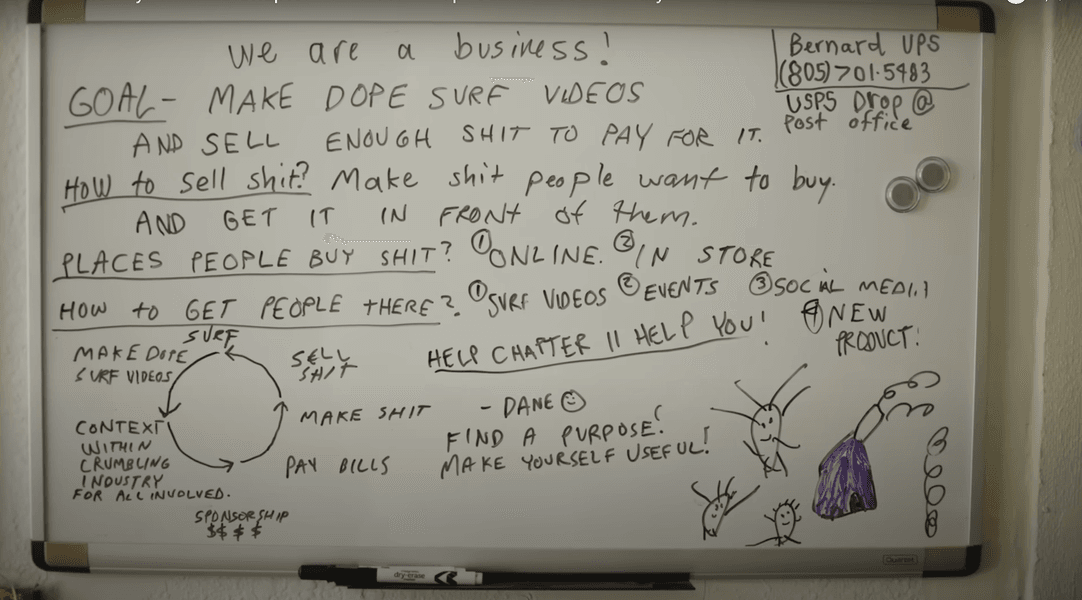 We are a business!
GOAL- MAKE DOPE SURF VIDEOS
AND SELL ENOUGH SHIT TO PAY FOR IT.
HOW to sell shit? Make shit people want to buy.
AND GET IT IN FRONT of them.
PLACES PEOPLE BUY SHIT? ① ONLINE. ② IN STORE
HOW to GET PEOPLE tHERE? ① SURF VIDEOS ② EVENTS ③ SOCIAL MEDIA
④ NEW
PRODUCT!
Bernard UPS
(805)701-5483
USPS Drop @
Post office
SURF
MAKE DOPE
SURF VIDEOS
SELL
SHIT
MAKE SHIT
PAY BILLS
CONTEXT
WITHIN
CRUMBLING
INDUSTRY
FOR ALL INVOLVED.
SPONSORSHIP
$$ $ $
HELP CHAPTER 11 HELP YOU!
- DANE ☺
FIND A PURPOSE!
MAKE YOURSELF USEFUL!
Quartet
dry-erase